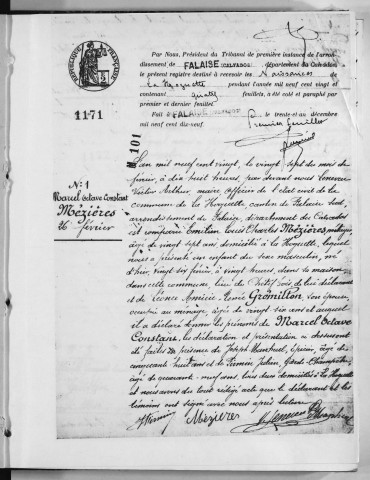 RÉPUBLIQUE FRANÇAISE
Par Nous, Président du Tribunal de première instance de l'arron-
dissement de FALAISE (CALVADOS) département du Calvados
le présent registre destiné à recevoir les Naissances de
La Hoguette pendant l'année mil neuf cent vingt et
contenant quatre feuillets, a été coté et paraphé par
premier et dernier feuillet
Fait à FALAISE le trente-et-un décembre
mil neuf cent dix-neuf.
Premier feuillet
1171
101
N° 1
Marcel Octave Constant
Mézières
26 février
L'an mil neuf cent vingt, le vingt sept du mois de
février, à dix huit heures, par devant nous
Victor Arthur, maire officier de l'état civil de la
commune de La Hoguette, canton de Falaise Sud,
arrondissement de Falaise, département du Calvados
est comparu Emilien Louis Charles Mézières,
âgé de vingt sept ans, domicilié à La Hoguette, lequel
nous a présenté un enfant du sexe masculin, né
d'hier, vingt six février, à vingt heures, dans sa maison
dans cette commune, lieu de, de lui déclarant
et de Léonce Aimée Grémillon, son épouse,
occupée au ménage, âgée de vingt-six ans et auquel
il a déclaré donner les prénoms de Marcel Octave
Constant. les déclaration et présentation ci dessus ont
été faites en présence de Joseph, épicier, âgé de
cinquante huit ans et de Firmin Julien, garde champêtre
âgé de quarante neuf ans, tous deux domiciliés à La Hoguette
et nous avons du tout rédigé acte que le déclarant et les
témoins ont signé avec nous après lecture
Mézières